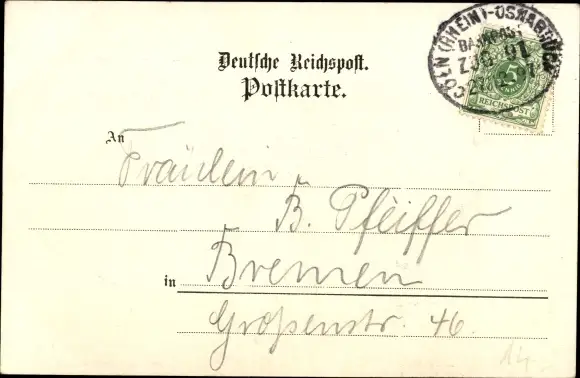 CÖLN (RHEIN)-OSNABRÜCK
BAHNPOST
ZUG 91
5
REICHSPOST
Deutsche Reichspost.
Postkarte.
An
Fräulein
B. Pfeiffer
in Bremen
Großenstr. 46.